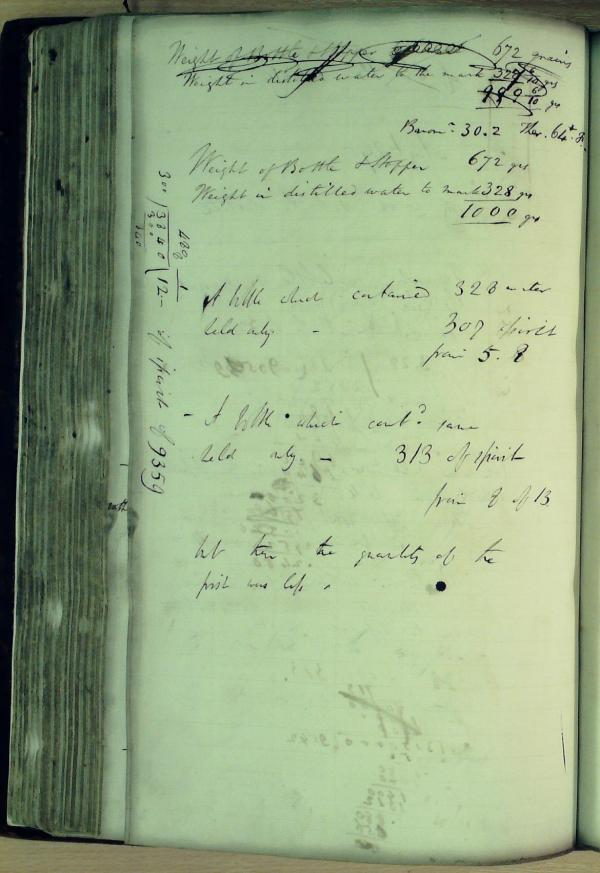 Weight of Bottle & Stopper 672 grains
Weight in distilled water to the mark 327 grs
999 grs
Barom. 30.2 Ther. 64
Weight of Bottle & Stopper 672 grs
Weight in distilled water to mark 328 grs
1000 grs
A bottle which contained 328 water
held only - 307 spirit
from 5. 8
- A bottle which cont.d same
held only - 313 of spirit
from 8 of 13
but then the quantity of the
first was less
of spirit of 9359
300 ) 3840 ( 12